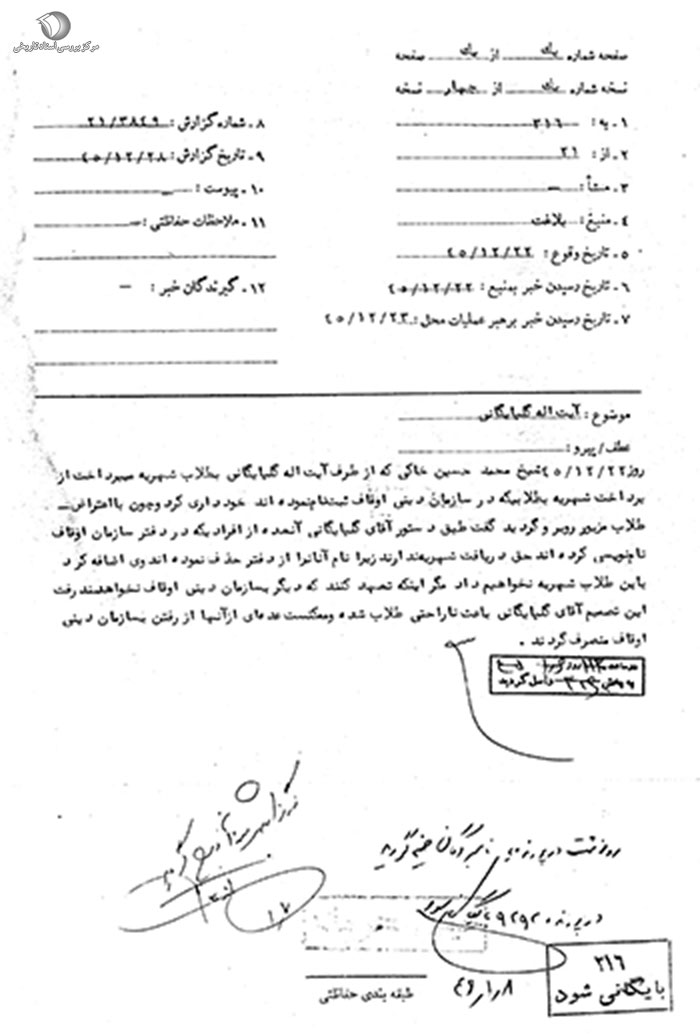 مرکز بررسی اسناد تاریخی
صفحه شماره یک از یک صفحه
نسخه شماره یک از چهار نسخه
۱ـ به: ۳۱۶
۲ـ از: ۲۱
۳ـ منشأ: ــ
۴ـ منبع: بلاغت
۵ـ تاریخ وقوع: ۴۵/۱۲/۲۲
۶ـ تاریخ رسیدن خبر بمنبع: ۴۵/۱۲/۲۲
۷ـ تاریخ رسیدن خبر برهبر عملیات محل: ۴۵/۱۲/۲۳
۸ـ شماره گزارش: ۲۱/۳۸۴۹
۹ـ تاریخ گزارش: ۴۵/۱۲/۲۸
۱۰ـ پیوست: ــ
۱۱ـ ملاحظات حفاظتی: ــ
۱۲ـ گیرندگان خبر: ــ
موضوع: آیت اله گلپایگانی
عطف/پیرو:
روز ۴۵/۱۲/۲۲ شیخ محمد حسین خاکی که از طرف آیت اله گلپایگانی بطلاب شهریه میپرداخت از
پرداخت شهریه بطلابیکه در سازمان دینی اوقاف ثبتنام نموده اند خودداری کرد و چون با اعتراض
طلاب مزبور روبرو گردید گفت طبق دستور آقای گلپایگانی آنعده از افرادیکه در دفتر سازمان اوقاف
نامنویسی کرده اند حق دریافت شهریه ندارند زیرا نام آنانرا از دفتر حذف نموده اند وی اضافه کرد
باین طلاب شهریه نخواهیم داد مگر اینکه تعهد کنند که دیگر بسازمان دینی اوقاف نخواهند رفت
این تصمیم آقای گلپایگانی باعث ناراحتی طلاب شده و ممکنست عده‌ای از آنها از رفتن بسازمان دینی
اوقاف منصرف گردند.
بخش ۳۱۶ واصل گردید
در پرونده
۴۶/۱/۸
۳۱۶
بایگانی شود
طبقه بندی حفاظتی